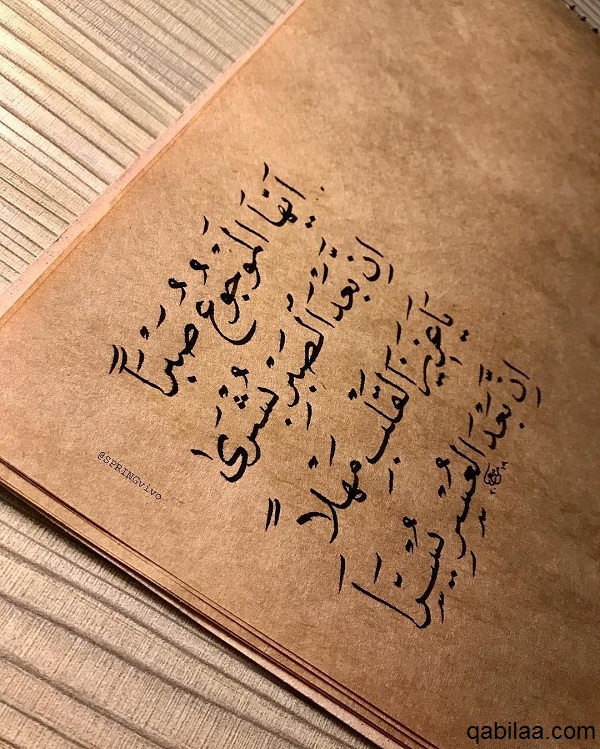 أَيُّهَا المَوْجُوعُ صَبْرًا
إِن بَعْدَ الصَبْرِ بُشْرَى
يَا عَزِيزَ القَلْبِ مَهْلًا
إِن بَعْدَ العُسْرِ يُسْرَا
@SPRINGvivo
qabilaa.com